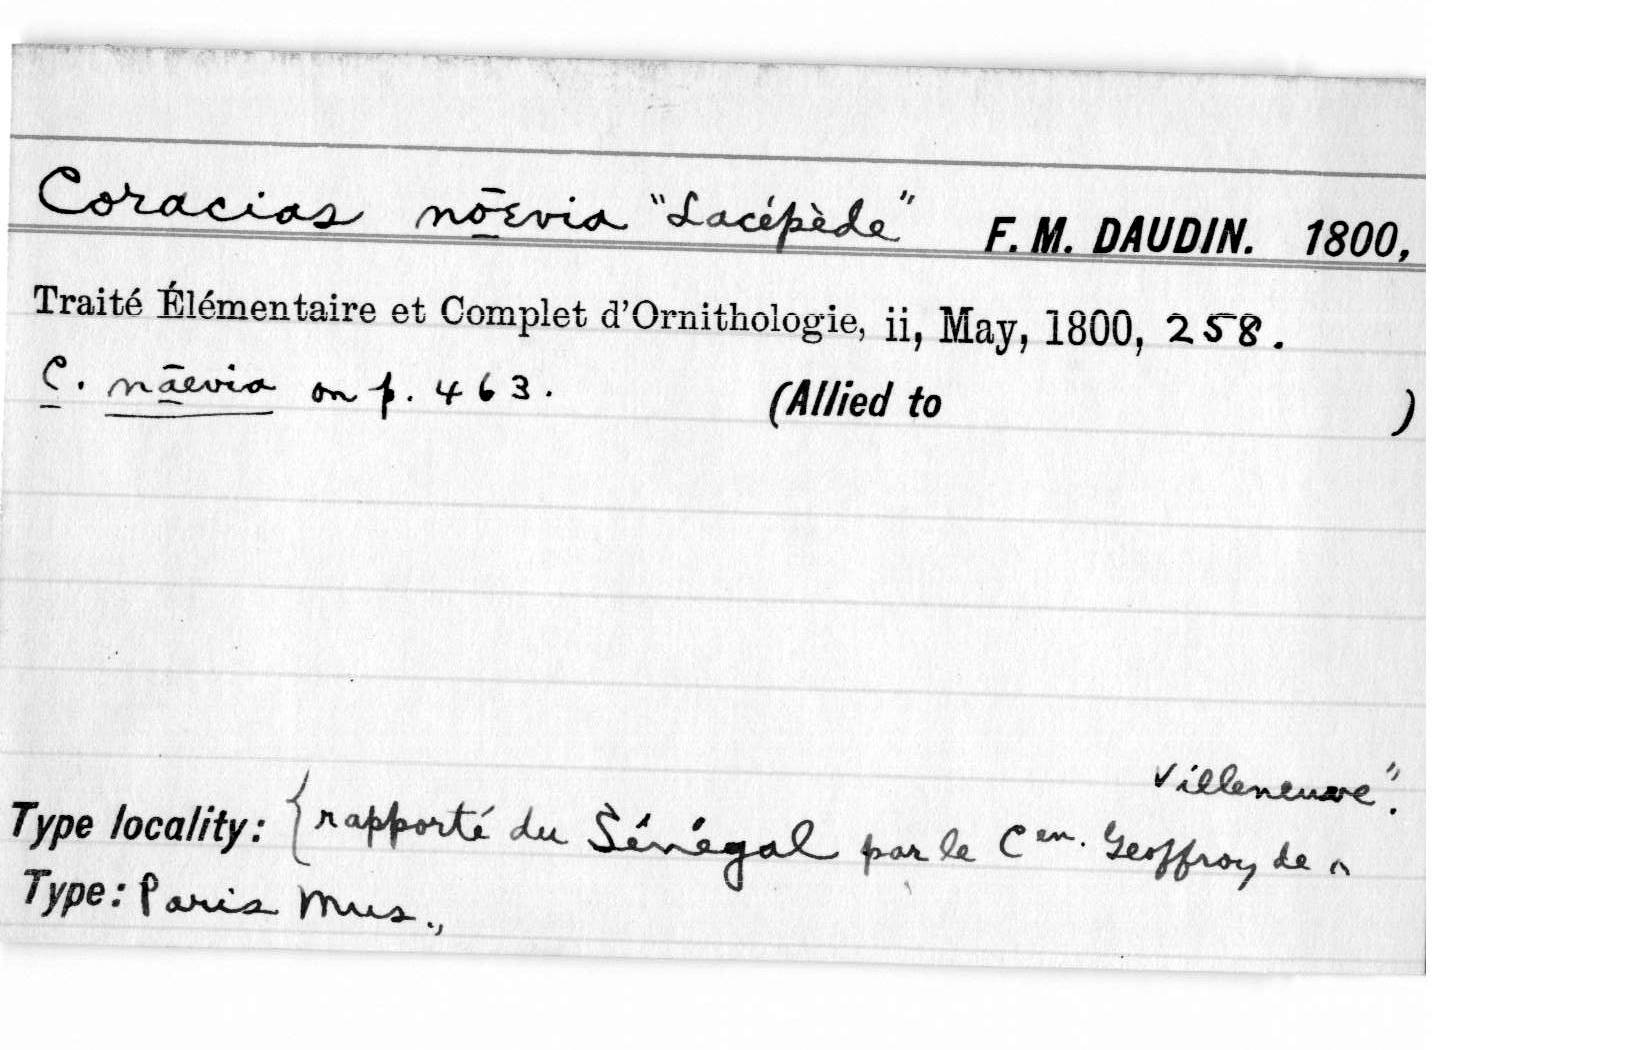 Coracias nōevia "Lacépède" F. M. DAUDIN. 1800,
Traité Élémentaire et Complet d'Ornithologie, ii, May, 1800, 258.
C. nāevia on p. 463. (Allied to )
Villeneuve".
Type locality: { rapporté du Sénégal par le Cen. Geoffroy de
Type: Paris Mus.,